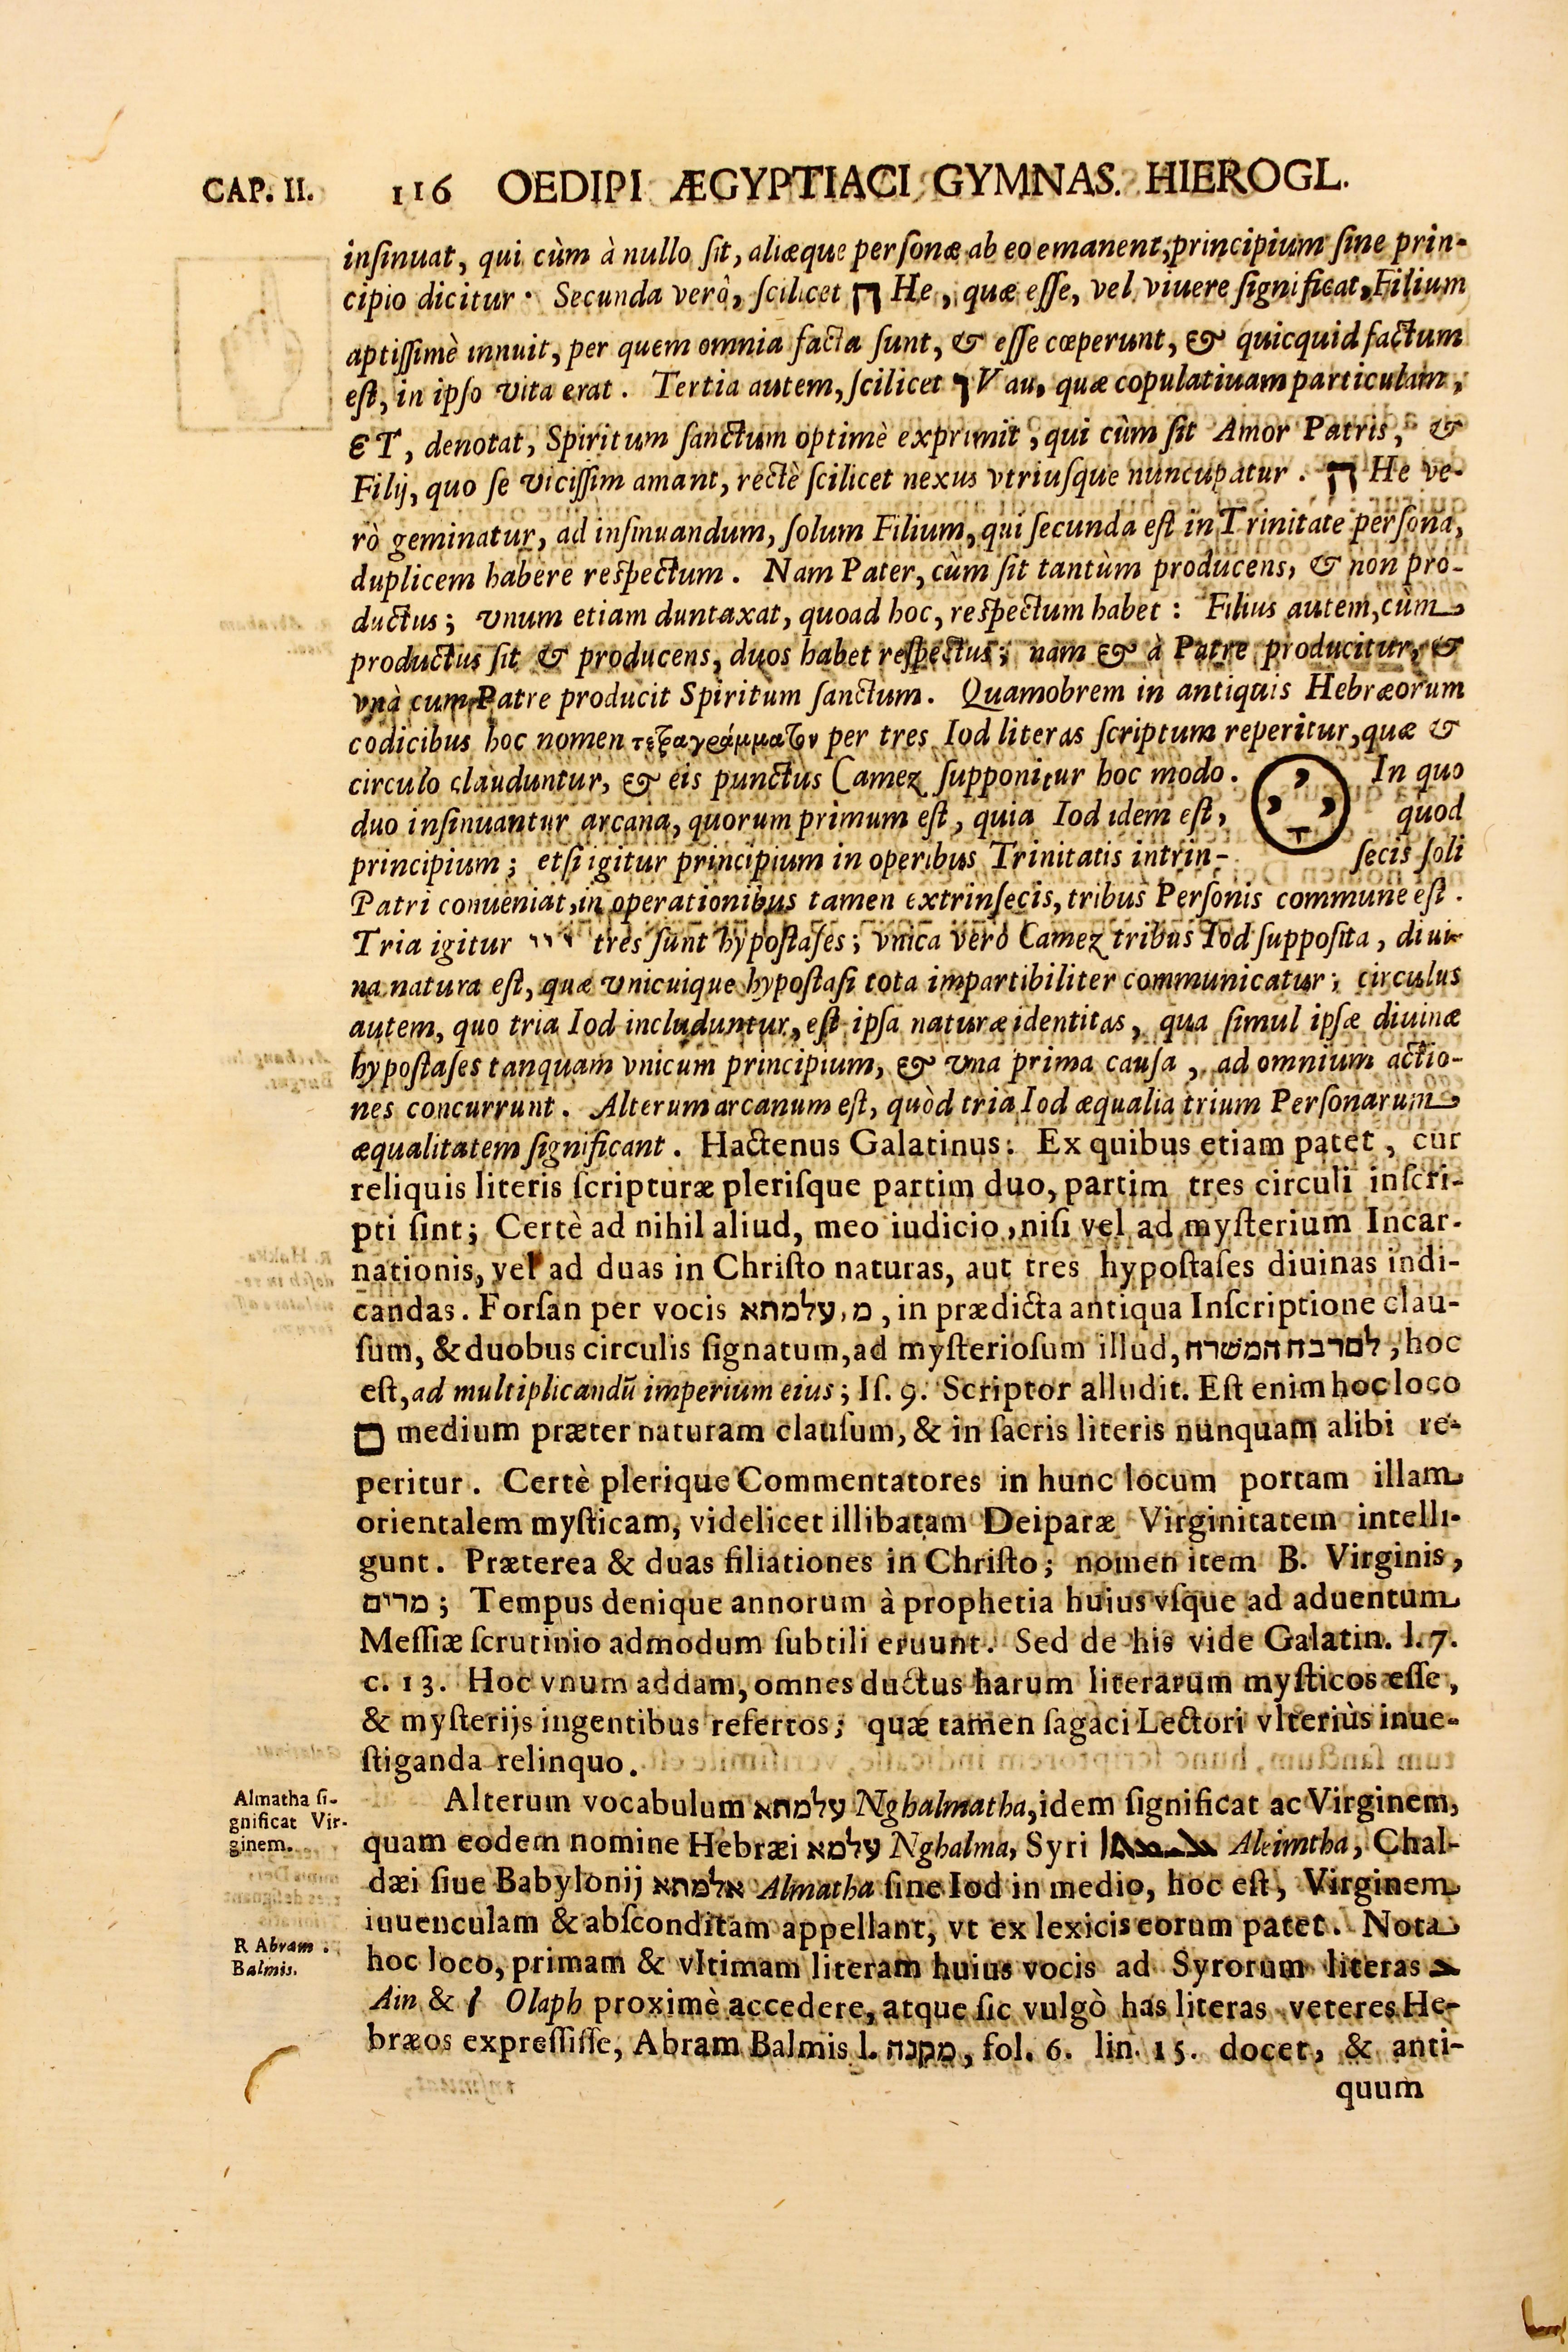 CAP. II. 116 OEDIPI ÆGYPTIACI GYMNAS. HIEROGL.
inſinuat, qui cùm à nullo ſit, aliæque perſonæ ab eo emanent, principium ſine prin-
cipio dicitur. Secunda verò, ſcilicet ה He, quæ eſſe, vel viuere ſignificat, Filium
aptiſſimè innuit, per quem omnia facta ſunt, & eſſe cœperunt, & quicquid factum
eſt, in ipſo vita erat. Tertia autem, ſcilicet ו Vau, quæ copulatiuam particulam,
ET, denotat, Spiritum ſanctum optimè exprimit, qui cùm ſit Amor Patris, &
Filij, quo ſe viciſſim amant, rectè ſcilicet nexus vtriuſque nuncupatur. ה He ve-
rò geminatur, ad inſinuandum, ſolum Filium, qui ſecunda eſt in Trinitate perſona,
duplicem habere reſpectum. Nam Pater, cùm ſit tantùm producens, & non pro-
ductus; vnum etiam duntaxat, quoad hoc, reſpectum habet: Filius autem, cùm
productus ſit & producens, duos habet reſpectus; nam & à Patre producitur, &
vnà cum Patre producit Spiritum ſanctum. Quamobrem in antiquis Hebræorum
codicibus hoc nomen τετραγράμματον per tres Iod literas ſcriptum reperitur, quæ &
circulo clauduntur, & eis punctus Camez ſupponitur hoc modo. In quo
duo inſinuantur arcana, quorum primum eſt, quia Iod idem eſt, quod
principium; etſi igitur principium in operibus Trinitatis intrin- ſecis ſoli
Patri conueniat, in operationibus tamen extrinſecis, tribus Perſonis commune eſt.
Tria igitur י י י tres ſunt hypoſtaſes; vnica verò Camez tribus Iod ſuppoſita, diui-
na natura eſt, quæ vnicuique hypoſtaſi tota impartibiliter communicatur; circulus
autem, quo tria Iod includuntur, eſt ipſa naturæ identitas, qua ſimul ipſæ diuinæ
hypoſtaſes tanquam vnicum principium, & vna prima cauſa, ad omnium actio-
nes concurrunt. Alterum arcanum eſt, quòd tria Iod æqualia trium Perſonarum
æqualitatem ſignificant. Hactenus Galatinus. Ex quibus etiam patet, cur
reliquis literis ſcripturæ pleriſque partim duo, partim tres circuli inſcri-
pti ſint; Certè ad nihil aliud, meo iudicio, niſi vel ad myſterium Incar-
nationis, vel ad duas in Chriſto naturas, aut tres hypoſtaſes diuinas indi-
candas. Forſan per vocis עלמתא, מ, in prædicta antiqua Inſcriptione clau-
ſum, & duobus circulis ſignatum, ad myſterioſum illud, לםרבה המשרה, hoc
eſt, ad multiplicandũ imperium eius; Iſ. 9. Scriptor alludit. Eſt enim hoc loco
ם medium præter naturam clauſum, & in ſacris literis nunquam alibi re-
peritur. Certè plerique Commentatores in hunc locum portam illam
orientalem myſticam, videlicet illibatam Deiparæ Virginitatem intelli-
gunt. Præterea & duas filiationes in Chriſto; nomen item B. Virginis,
מרים; Tempus denique annorum à prophetia huius vſque ad aduentum
Meſſiæ ſcrutinio admodum ſubtili eruunt. Sed de his vide Galatin. l. 7.
c. 13. Hoc vnum addam, omnes ductus harum literarum myſticos eſſe,
& myſterijs ingentibus refertos; quæ tamen ſagaci Lectori vlteriùs inue-
ſtiganda relinquo.
Almatha ſi-
gnificat Vir-
ginem.
Alterum vocabulum עלמתא Nghalmatha, idem ſignificat ac Virginem,
quam eodem nomine Hebræi עלמא Nghalma, Syri Aleimtha, Chal-
dæi ſiue Babylonij אלמתא Almatha ſine Iod in medio, hoc eſt, Virginem
iuuenculam & abſconditam appellant, vt ex lexicis eorum patet. Nota
R Abram
Balmis.
hoc loco, primam & vltimam literam huius vocis ad Syrorum literas ܥ
Ain & ܐ Olaph proximè accedere, atque ſic vulgò has literas veteres He-
bræos expreſſiſſe, Abram Balmis l. מקנה, fol. 6. lin. 15. docet, & anti-
quum